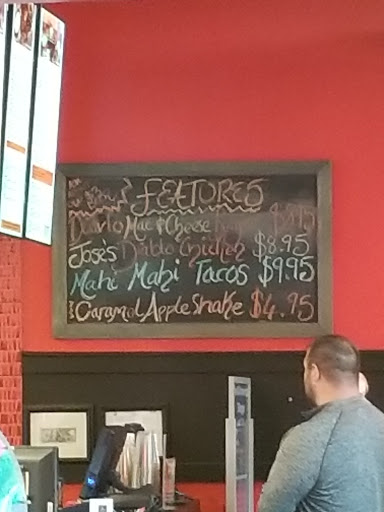 FEATURES
Mac & Cheese
José's Diablo Chicken $8.95
Mahi Mahi Tacos $9.95
Caramel Apple Shake $4.95